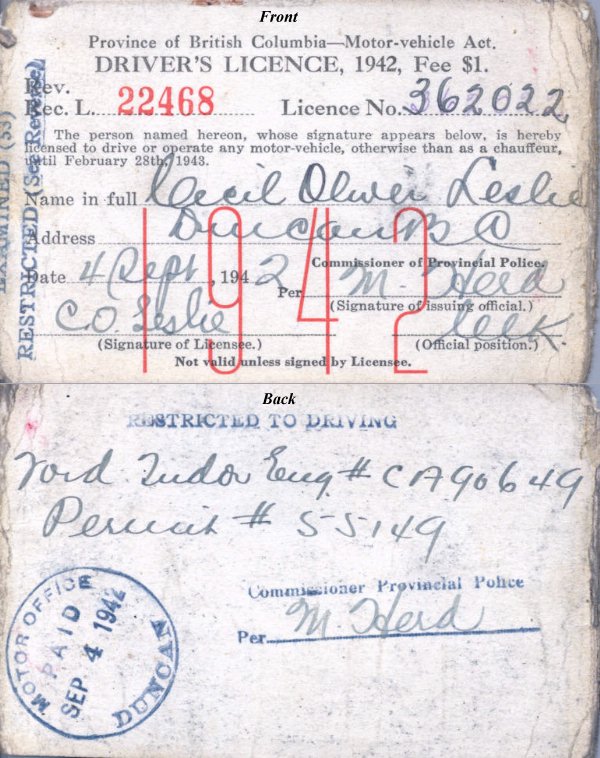 Front
Province of British Columbia—Motor-vehicle Act.
DRIVER'S LICENCE, 1942, Fee $1.
Rev.
Rec. L. 22468 Licence No. 362022
The person named hereon, whose signature appears below, is hereby
licensed to drive or operate any motor-vehicle, otherwise than as a chauffeur,
until February 28th, 1943.
Name in full Cecil Oliver Leslie
Address Duncan B C
Date 4 Sept, 1942
Commissioner of Provincial Police.
Per M. Herd
(Signature of issuing official.)
C.O Leslie Clerk.
(Signature of Licensee.) (Official position.)
Not valid unless signed by Licensee.
1942
EXAMINED (33)
RESTRICTED (See Reverse)
Back
RESTRICTED TO DRIVING
Ford Tudor Eng # CA90649
Permit # 55149
Commissioner Provincial Police
Per M. Herd
MOTOR OFFICE
PAID
SEP. 4 1942
DUNCAN